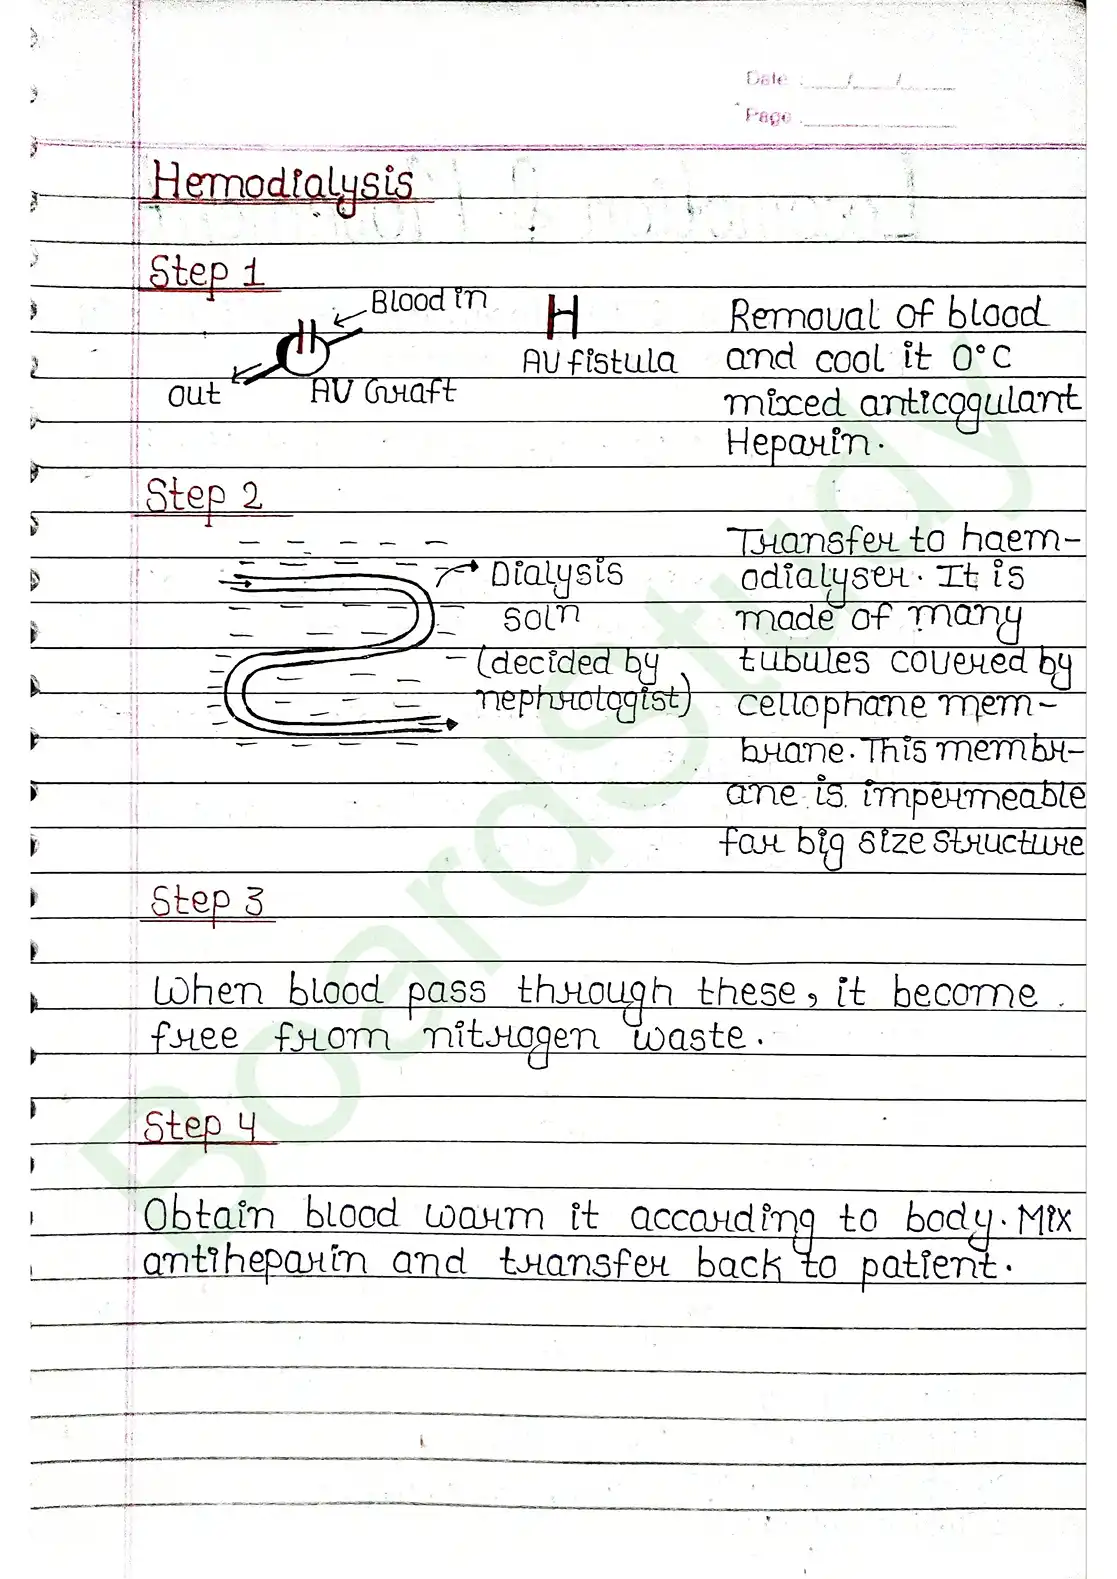 Date : ___/___/___
Page ___
Hemodialysis
Step 1
Blood in
out
AV Graft
H
AV fistula
Removal of blood
and cool it 0°C
mixed anticogulant
Heparin.
Step 2
Dialysis
soln
(decided by
nephrologist)
Transfer to haem-
odialyser. It is
made of many
tubules covered by
cellophane mem-
brane. This membr-
ane is impermeable
for big size structure
Step 3
When blood pass through these, it become
free from nitrogen waste.
Step 4
Obtain blood warm it according to body. Mix
antiheparin and transfer back to patient.
BoardStudy